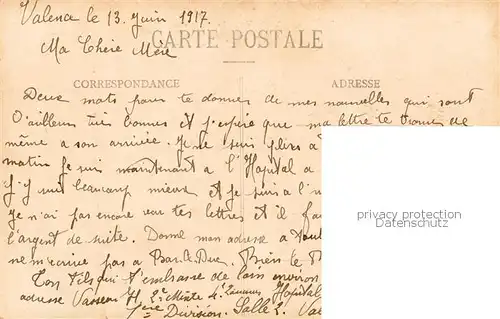 Valence le 13 Juin 1917.
Ma Chère Mère
CARTE POSTALE
CORRESPONDANCE
ADRESSE
Deux mots pour te donner de mes nouvelles qui sont
d'ailleurs très bonnes et j'espère que ma lettre te trouve de
même a son arrivée. Je ne suis plus a
matin Je suis maintenant a l'Hopital a
J'y suis beaucoup mieux et je suis a l'
Je n'ai pas encore reçu tes lettres et il
l'argent de suite. Donne mon adresse a
ne m'écrive pas a Bar-le-Duc. Bien le
Ton fils qui t'embrasse de loin
adresse Hopital
Division. Salle 2.
privacy protection
Datenschutz